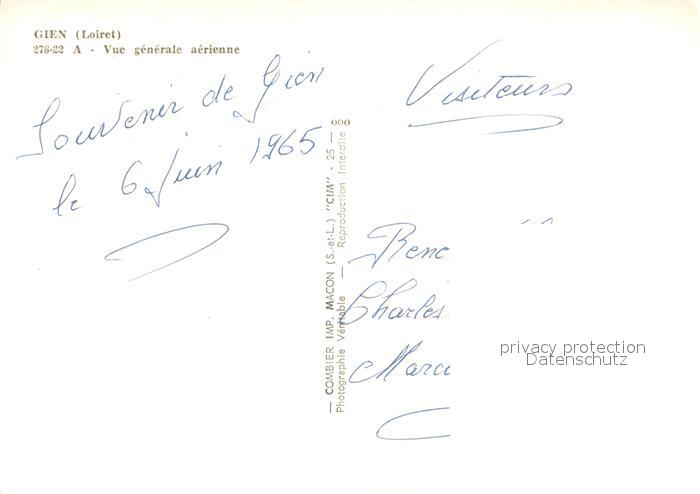 GIEN (Loiret)
276-22 A - Vue générale aérienne
Souvenir de Gien
le 6 Juin 1965
Visiteurs
René
Charles
— COMBIER IMP. MACON (S.-et-L.) "CIM" - 25 — 000
Photographie Véritable — Reproduction Interdite
privacy protection
Datenschutz